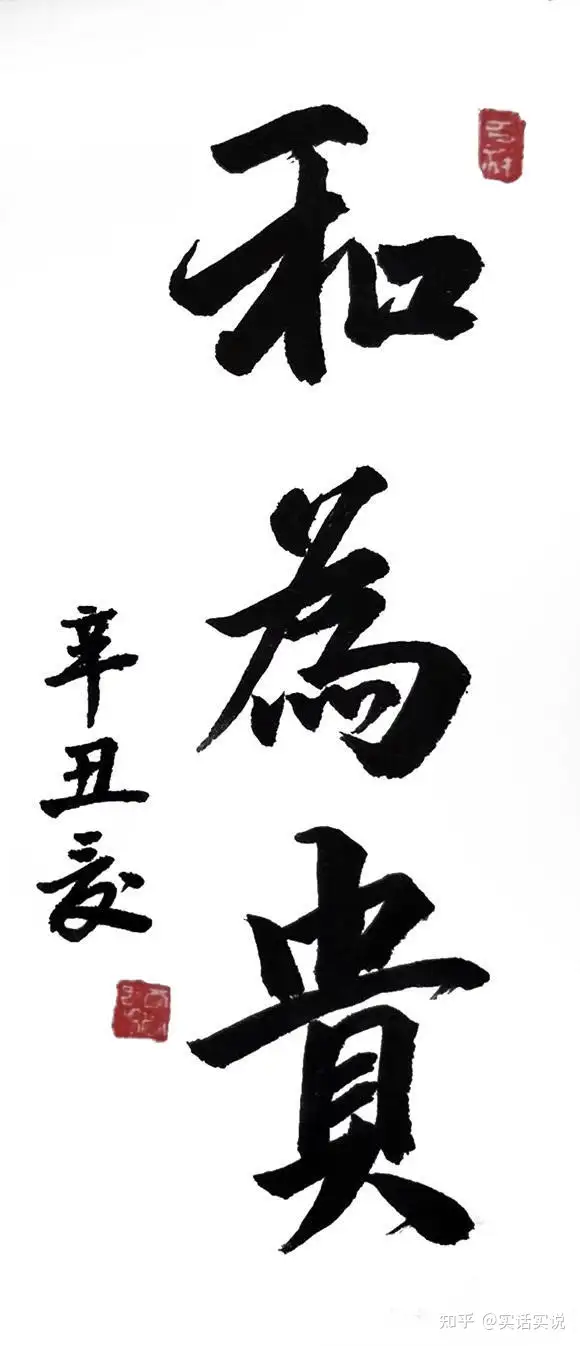 和為貴
辛丑夏
知乎 @实话实说